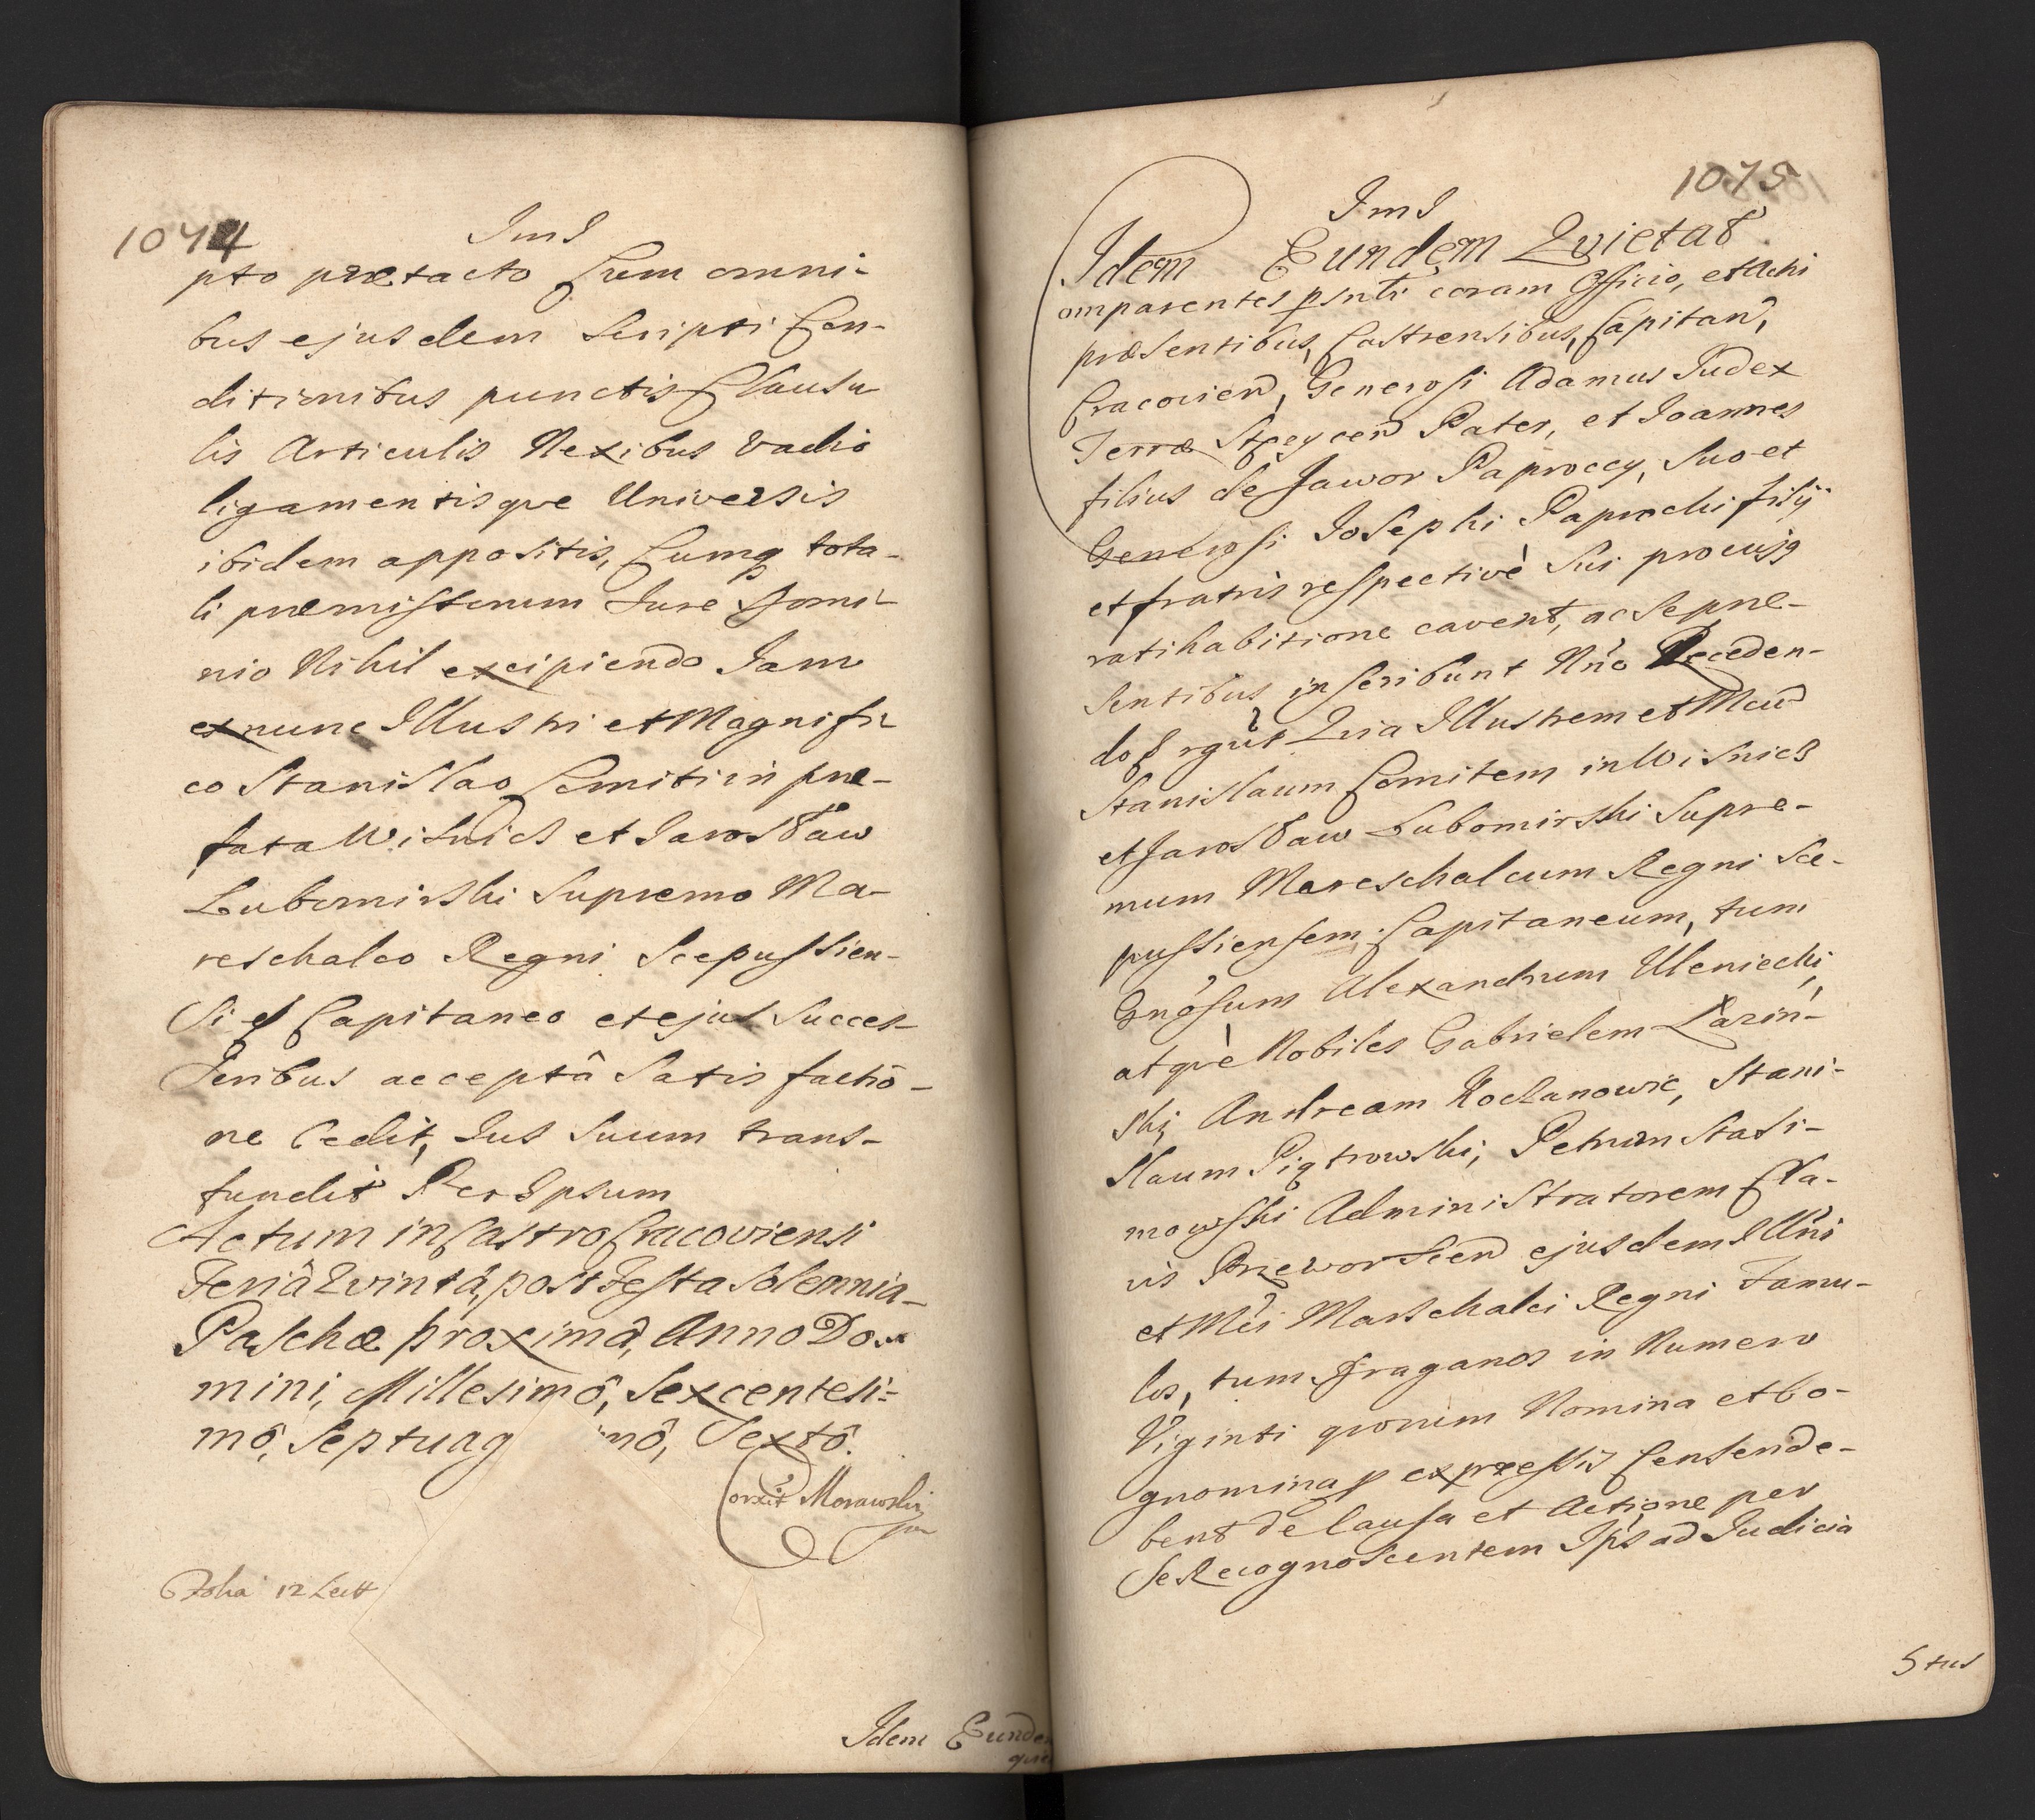 1074
JmJ
pto praetacto Cum omni-
bus ejusdem Scripti Con-
ditionibus punctis Clausu
lis Articulis Nexibus vadio
ligamentisqve Universis
ibidem appositis, Cumq tota-
li praemissorum Jure Domi-
nio Nihil excipiendo Jam
ex nunc Illustri et Magnifi-
co Stanislao Comiti in prae-
fata Wisnicz et Jarosław
Lubomirski Supremo Ma-
reschalco Regni Scepussien-
Si Capitaneo et ejus Succes-
Soribus acceptâ Satisfactio-
ne Cedit, Jus Suum trans-
fundit Per Ipsum
Actum in Castro Cracoviensi
Feriâ Qvintâ, post Festa Solennia
Paschae proximâ, Anno Do-
mini, Millesimô, Sexcentesi=
mô, Septuag mô, Sextô.
Corxit Morawski
Folia 12 Lect
Idem Eunde
1075
JmJ
Idem Eundem Qvietat
omparentes psntr coram Officio, et Actis
praesentibus, Castrensibus, Capitan,
Cracovien, Generosi Adamus Judex
Terrae Stężycen Pater, et Joannes
filius de Jawor Paproccy, Suo et
Generosi Josephi Paprocki filij
et fratris respectivè Sui pro cujq
ratihabitione cavent, ac Se prae-
Sentibus inscribunt Nno Receden-
do Qvia Illustrem et Mcum
Stanislaum Comitem in Wisnicz
et Jarosław Lubomirski Supre-
mum Mareschalcum Regni Sce-
pussiensem Capitaneum, tum
Gnosum Alexandrum Uleniecki,
atqvè Nobiles Gabrielem Łazin-
ski, Andream Koczanowic, Stani-
slaum Piątrowski, Petrum Stasi-
mowski Administratorem Cla-
vis Przeworscen ejusdem Illris
et Mci Marschalci Regni Famu-
los, tum Draganos in Numero
Viginti qvorum Nomina et Co-
gnomina p expressis Censeri de-
bent de Causa et Actione per
Se Recognoscentem Ips ad Judicia
Stus